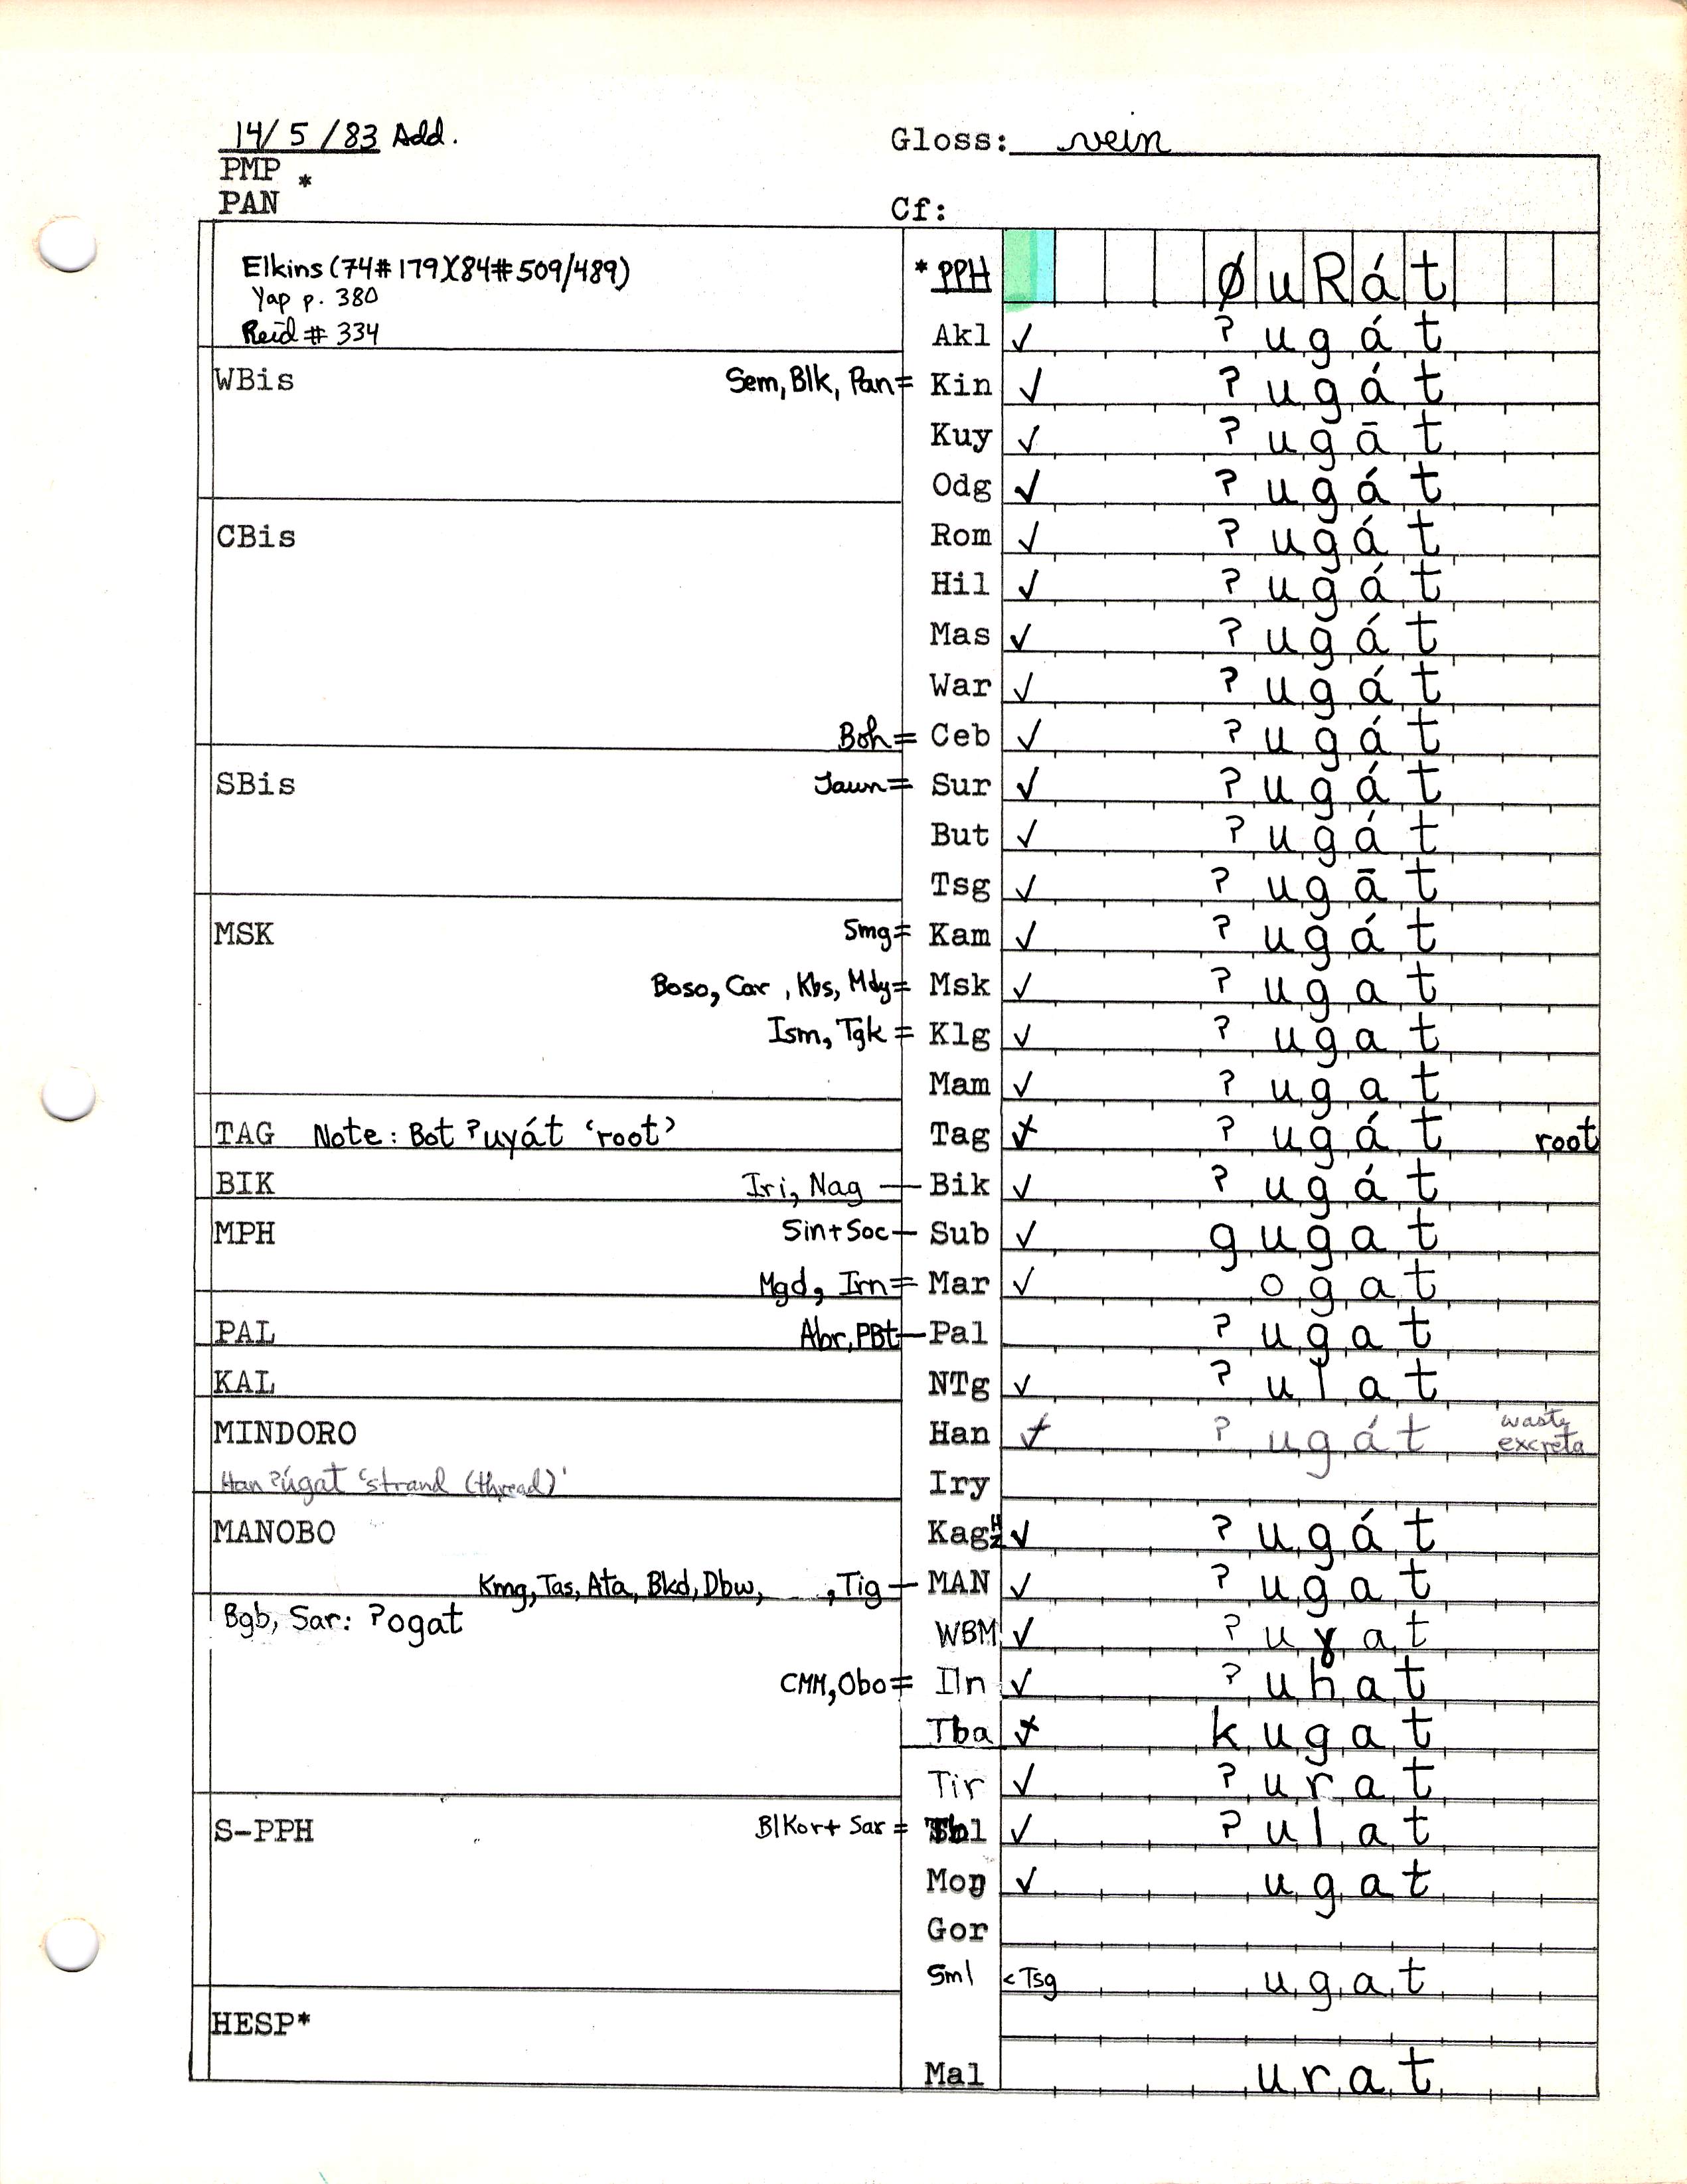 14/5/83 Add. Gloss: vein
PMP *
PAN Cf:
Elkins (74#179)(84#509/489) *PPH ØuRát
Yap p. 380
Reid # 334 Akl ✓ ʔugát
WBis Sem, Blk, Pan= Kin ✓ ʔugát
Kuy ✓ ʔugāt
Odg ✓ ʔugát
CBis Rom ✓ ʔugát
Hil ✓ ʔugát
Mas ✓ ʔugát
War ✓ ʔugát
Boh= Ceb ✓ ʔugát
SBis Jaun= Sur ✓ ʔugát
But ✓ ʔugát
Tsg ✓ ʔugāt
MSK Smg= Kam ✓ ʔugát
Boso, Car, Kbs, Mdy= Msk ✓ ʔugat
Ism, Tgk= Klg ✓ ʔugat
Mam ✓ ʔugat
TAG Note: Bot ʔuyát ‘root’ Tag ✓ ʔugát root
BIK Iri, Nag — Bik ✓ ʔugát
MPH Sin+Soc — Sub ✓ gugat
Mgd, Irn= Mar ✓ ogat
PAL Abr, PBt — Pal ʔugat
KAL NTg ✓ ʔulat
MINDORO Han ✓ ʔugát waste, excreta
Han ʔúgat ‘strand (thread)’ Iry
MANOBO Kag ✓ ʔugát
Kmg, Tas, Ata, Bkd, Dbw, , Tig — MAN ✓ ʔugat
Bgb, Sar: ʔogat WBM ✓ ʔuɣat
CMM, Obo= Iln ✓ ʔuhat
Tba ✓ kugat
Tir ✓ ʔurat
S-PPH BlKor+ Sar = Tbl ✓ ʔulat
Moŋ ✓ ugat
Gor
Sml <Tsg ugat
HESP*
Mal urat